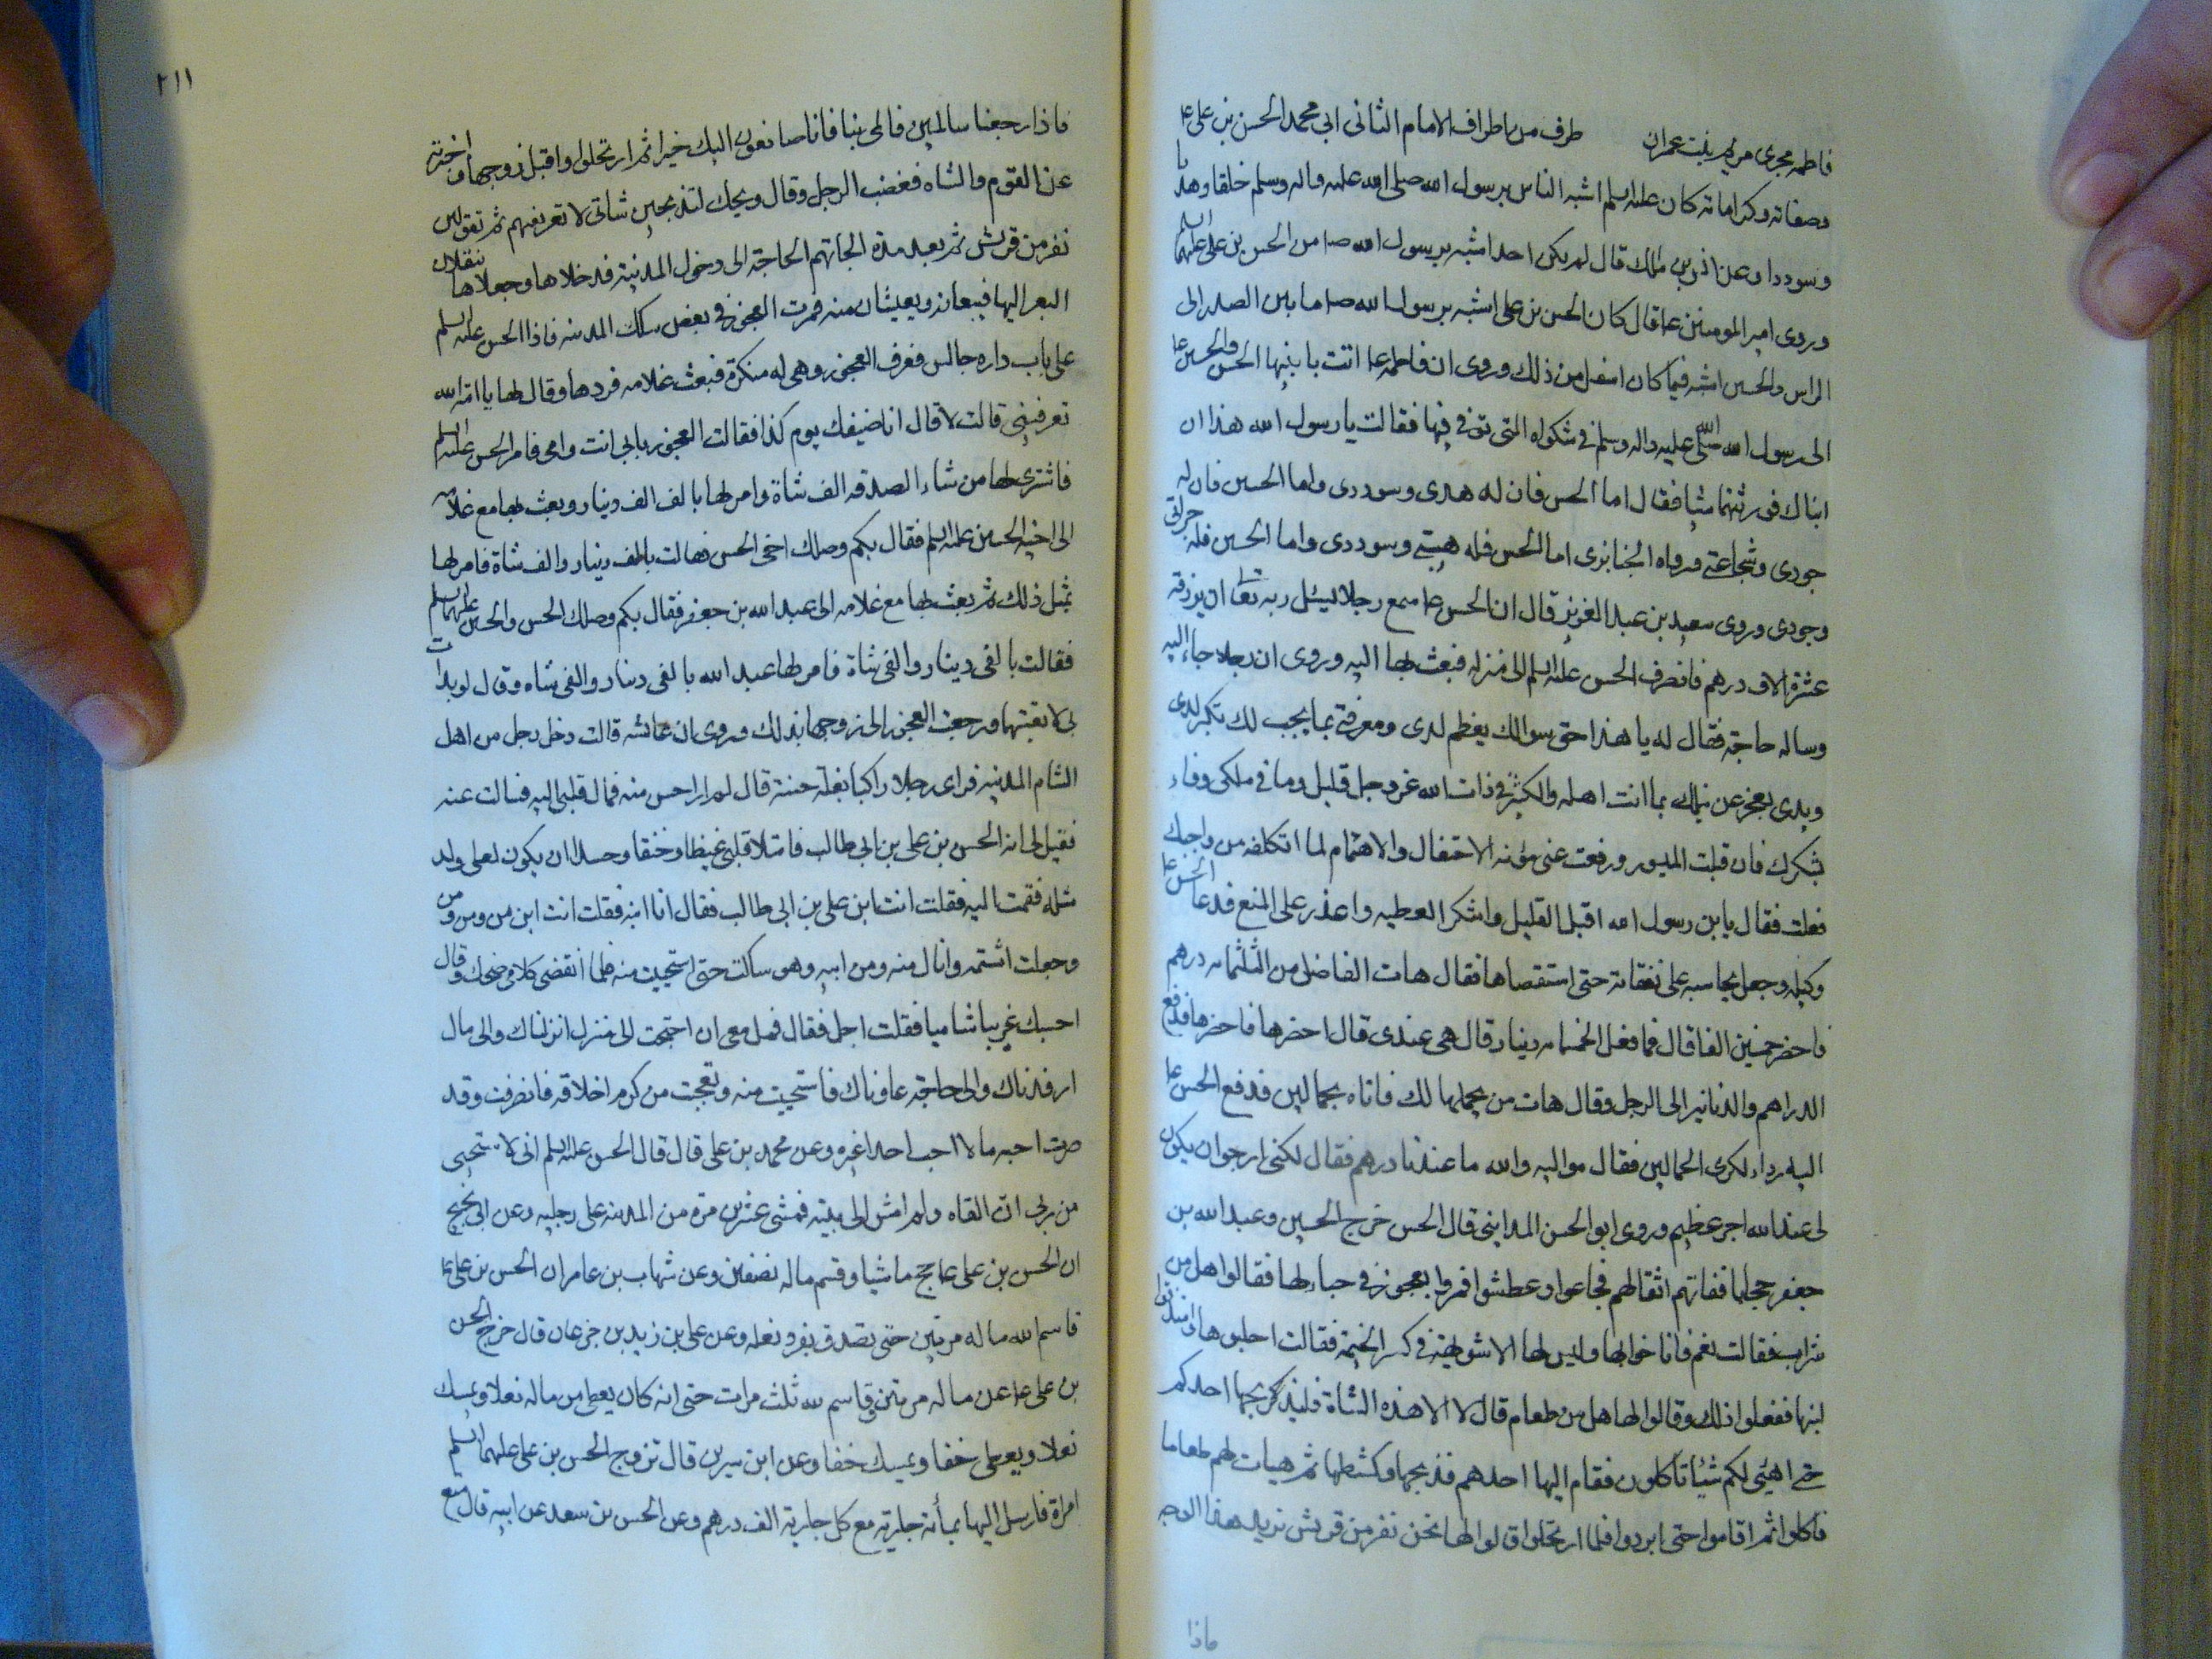 فاطمه مجرى مريم بنت عمران طرف من اطراف الامام الثانى ابى محمد الحسن بن على عا
وصفاته وكراماته كان عليه السلم اشبه الناس برسول الله صلى الله عليه واله وسلم خلقا وهديا
وسوددا وعن انس بن مالك قال لم يكن احد اشبه برسول الله صا من الحسن بن على عليهما السلم
وروى امير المومنين عا قال كان الحسن بن على اشبه برسول الله صا ما بين الصدر الى
الراس والحسين اشبه فيما كان اسفل من ذلك وروى ان فاطمه عا اتت بابنيها الحسن والحسين عا
الى رسول الله صلى الله عليه واله وسلم في شكواه التى توفى فيها فقالت يا رسول الله هذان
ابناك فورثهما شيا فقال اما الحسن فان له هدى وسوددى واما الحسين فان له
جودى وشجاعتى ورواه الجنابذى اما الحسن فله هيبتى وسوددى واما الحسين فله جراتى
وجودى وروى سعيد بن عبد العزيز قال ان الحسن عا سمع رجلا يسئل ربه تعا ان يرزقه
عشرة الاف درهم فانصرف الحسن عليه السلم الى منزله فبعث بها اليه وروى ان رجلا جاء اليه
وساله حاجة فقال له يا هذا حق سوالك يعظم لدى ومعرفتى بما يجب لك تكبر لدى
ويدى تعجز عن نيلك بما انت اهله والكثير في ذات الله عز وجل قليل وما في ملكى وفاء
بشكرك فان قبلت الميسور ورفعت عنى مؤنة الاحتفال والاهتمام لما اتكلفه من واجبك
فعلت فقال يا بن رسول الله اقبل القليل واشكر العطيه واعذر على المنع فدعا الحسن عا
وكيله وجعل يحاسبه على نفقاته حتى استقصاها فقال هات الفاضل من الثلثمائه درهم
فاحضر خمسين الفا قال فما فعل الخمسمايه دينار قال هى عندى قال احضرها فاحضرها فدفع
الدراهم والدنانير الى الرجل وقال هات من يحملها لك فاتاه بحمالين فدفع الحسن عا
اليه رداء لكرى الحمالين فقال مواليه والله ما عندنا درهم فقال لكنى ارجوا ان يكون
لى عند الله اجر عظيم وروى ابو الحسن المداينى قال الحسن خرج الحسين وعبد الله بن
جعفر حجاجا ففاتهم اثقالهم فجاعوا وعطشوا فمروا بعجوز في خباء لها فقالوا هل من
شراب فقالت نعم فاناخوا بها وليس لها الا شويهة في كسر الخيمة فقالت احلبوها وامتذقوا
لبنها ففعلوا ذلك وقالوا لها هل من طعام قال لا الا هذه الشاة فليذبحها احدكم
حتى اهيئى لكم شيئا تاكلون فقام اليها احدهم فذبحها وكشطها ثم هيات لهم طعاما
فاكلوا ثم اقاموا حتى ابردوا فلما ارتحلوا قالوا لها نحن نفر من قريش نريد هذا الوجه
ماذا
٢١١
فاذا رجعنا سالمين فالمى بنا فانا صانعون اليك خيرا ثم ارتحلوا واقبل زوجها فاخبرته
عن القوم والشاه فغضب الرجل وقال ويحك لتذبحين شاتى لا تعرفهم ثم تقولين
نفر من قريش ثم بعد مدة الجاتهم الحاجة الى دخول المدينة فدخلاها وجعلا ينقلان
البعر اليها فيبعانه ويعيشان منه فمرت العجوز في بعض سكك المدينه فاذا الحسن عليه السلم
على باب داره جالس فعرف العجوز وهى له منكرة فبعث غلامه فردها وقال لها يا امة الله
تعرفينى قالت لا قال انا ضيفك يوم كذا فقالت العجوز بابى انت وامى فامر الحسن عليه السلم
فاشترى لها من شاء الصدقه الف شاة وامر لها بالف الف دينار وبعث بها مع غلامه
الى اخيه الحسين عليه السلم فقال بكم وصلك اخى الحسن فقالت بالف دينار والف شاة فامر لها
بمثل ذلك ثم بعث بها مع غلامه الى عبد الله بن جعفر فقال بكم وصلك الحسن والحسين عليهما السلم
فقالت بالفى دينار والفى شاة فامر لها عبد الله بالفى دينار والفى شاه وقال لو بدات
بى لاتعبتهما ورجعت العجوز الى زوجها بذلك وروى ان عائشه قالت دخل رجل من اهل
الشام المدينه فراى رجلا راكبا بغلة حسنة قال لم ار احسن منه فمال قلبى اليه فسالت عنه
فقيل لى انه الحسن بن على بن ابى طالب فامتلا قلبى غيظا وحنقا وحسدا ان يكون لعلى ولد
مثله فقمت اليه فقلت انت ابن على بن ابى طالب فقال انا ابنه فقلت انت ابن من ومن ومن
وجعلت اشتمه وانال منه ومن ابيه وهو ساكت حتى استحييت منه فلما انقضى كلامى ضحك وقال
احسبك غريبا شاميا فقلت اجل فقال فمل معى ان احتجت الى منزل انزلناك والى مال
ارفدناك والى حاجة عاوناك فاستحييت منه وتعجبت من كرم اخلاقه فانصرفت وقد
صرت احبه ما لا احب احدا غيره وعن محمد بن على قال قال الحسن عليه السلم انى لاستحيى
من ربى ان القاه ولم امش الى بيته فمشى عشرين مرة من المدينه على رجليه وعن ابى نجيح
ان الحسن بن على عا حج ماشيا وقسم ماله نصفين وعن شهاب بن عامر ان الحسن بن على عا
قاسم الله ماله مرتين حتى تصدق بفرد نعله وعن على بن زيد بن جزعان قال خرج الحسن
بن على عا عن ماله مرتين وقاسم لله ثلث مرات حتى انه كان يعطى من ماله نعلا ويمسك
نعلا ويعطى خفا ويمسك خفا وعن ابن سيرين قال تزوج الحسن بن على عليهما السلم
امراة فارسل اليها بمأئة جارية مع كل جارية الف درهم وعن الحسن بن سعد عن ابيه قال متع